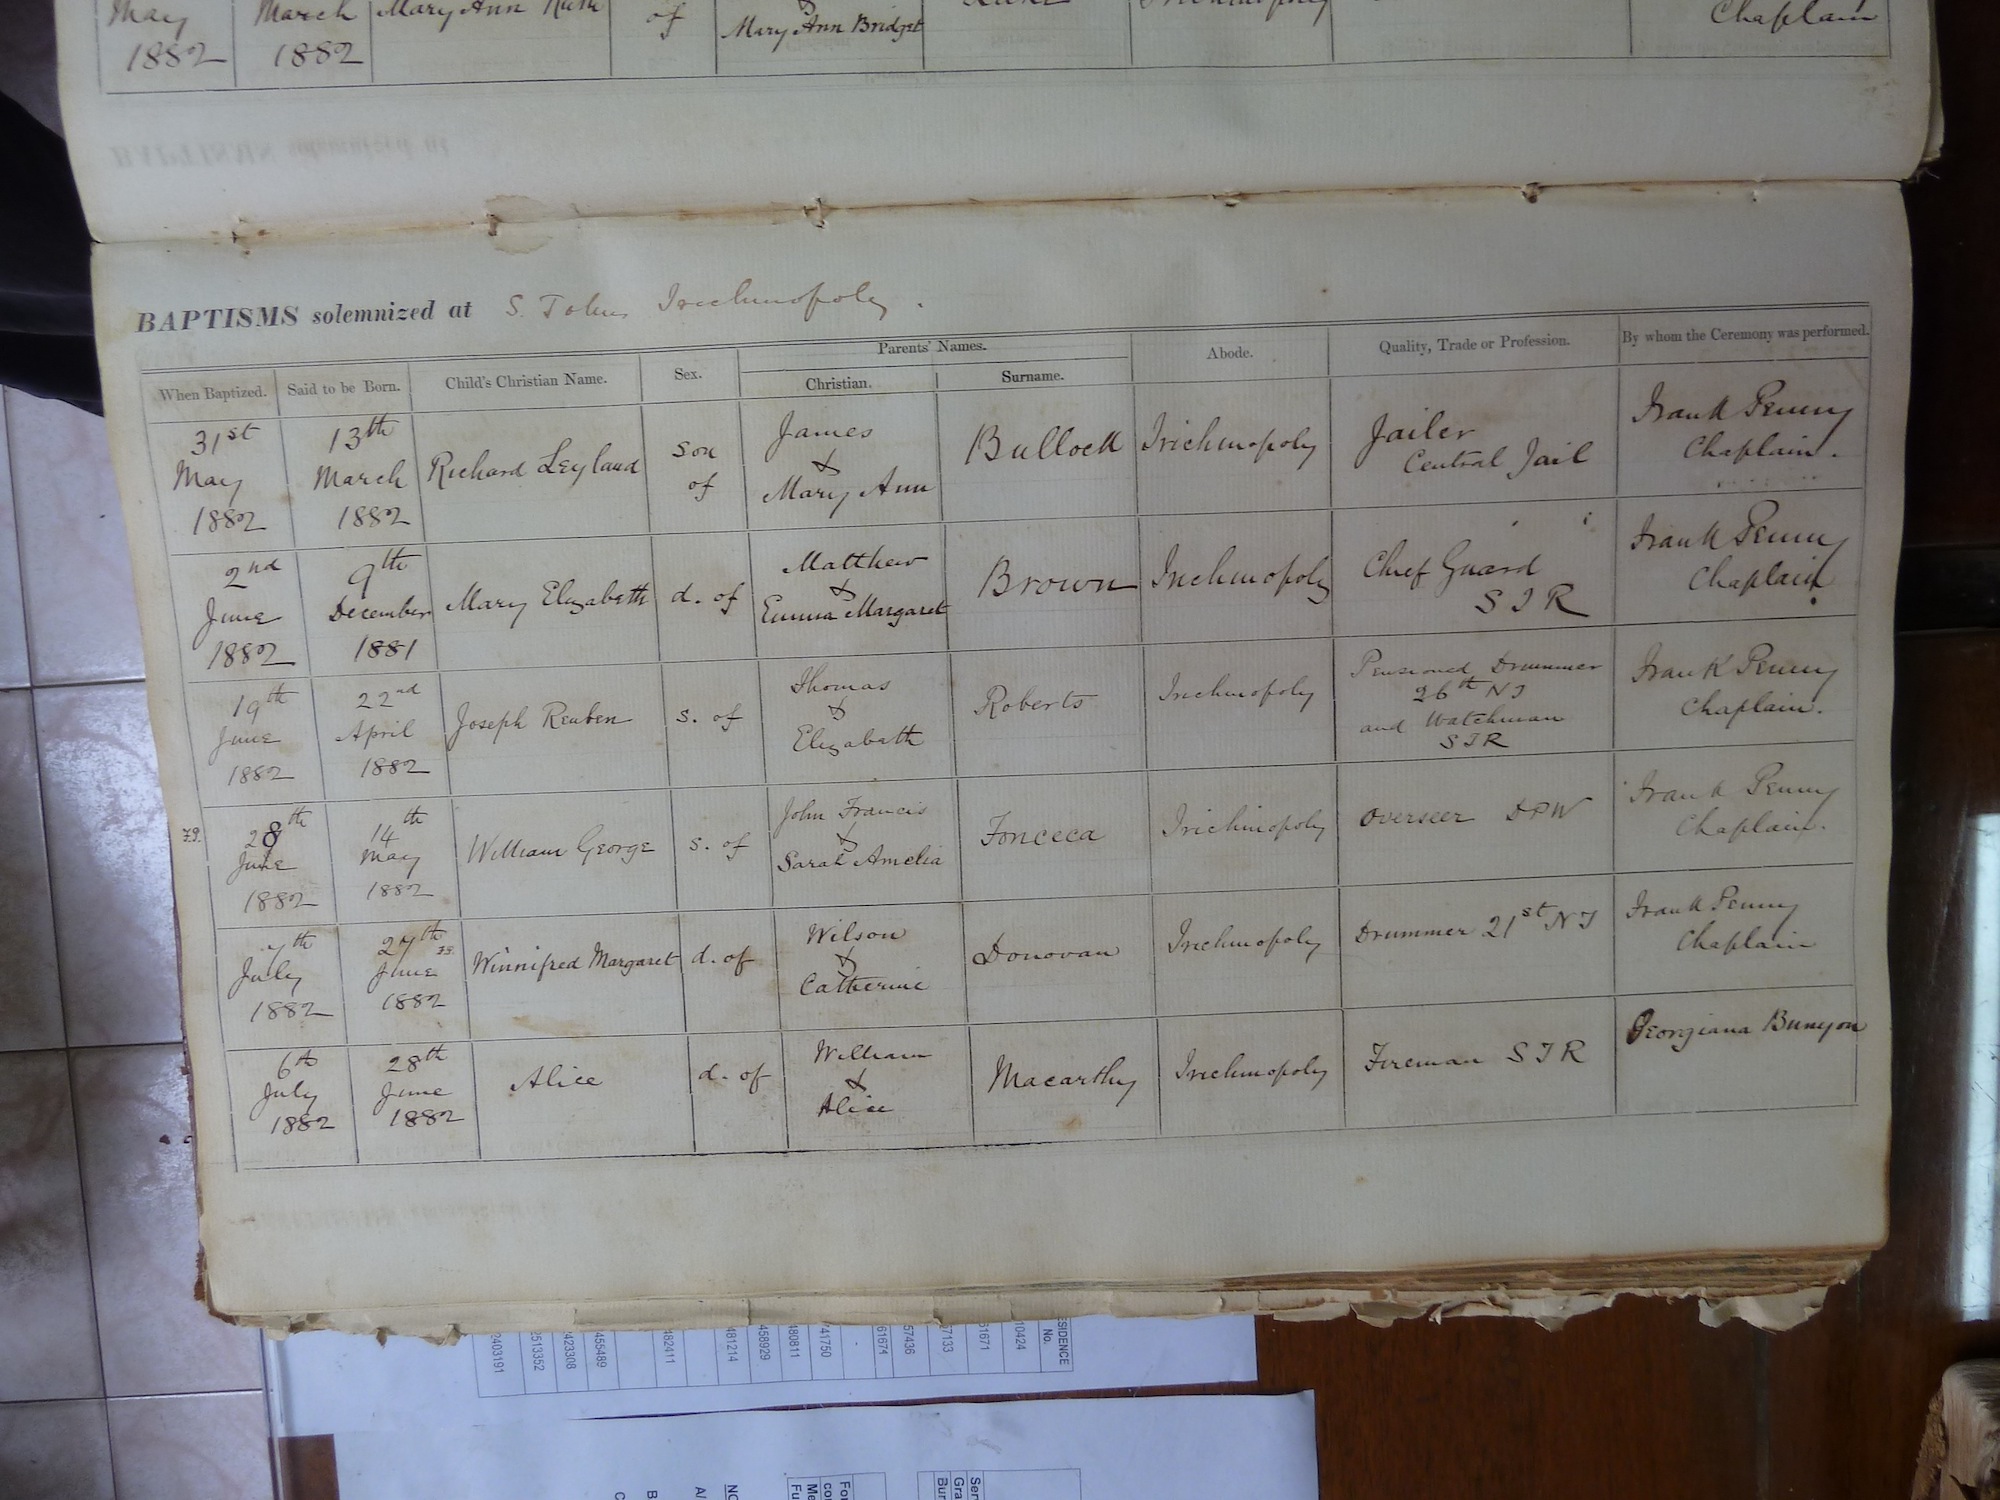 May
1882
March
1882
Mary Ann Ruth
of
&
Mary Ann Bridget
Chaplain
BAPTISMS solemnized at S. Johns Trichinopoly.
When Baptized.
Said to be Born.
Child's Christian Name.
Sex.
Parents' Names.
Christian.
Surname.
Abode.
Quality, Trade or Profession.
By whom the Ceremony was performed.
31st
May
1882
13th
March
1882
Richard Leyland
son
of
James
&
Mary Ann
Bullock
Trichinopoly
Jailer
Central Jail
Frank Penny
Chaplain.
2nd
June
1882
9th
December
1881
Mary Elizabeth
d. of
Matthew
&
Emma Margaret
Brown
Trichinopoly
Chief Guard
S I R
Frank Penny
Chaplain
19th
June
1882
22nd
April
1882
Joseph Reuben
s. of
Thomas
&
Elizabeth
Roberts
Trichinopoly
Pensioned Drummer
26th N I
and Watchman
S I R
Frank Penny
Chaplain.
F.P.
28th
June
1882
14th
May
1882
William George
s. of
John Francis
&
Sarah Amelia
Fonceca
Trichinopoly
Overseer DPW
Frank Penny
Chaplain.
7th
July
1882
27th
June
1882
Winnifred Margaret
d. of
Wilson
&
Catherine
Donovan
Trichinopoly
Drummer 21st N I
Frank Penny
Chaplain
6th
July
1882
28th
June
1882
Alice
d. of
William
&
Alice
Macarthy
Trichinopoly
Fireman S I R
Georgiana Bunyon
2403191
2513352
2423308
455489
482411
481214
458929
480811
741750
-
61671
57436
7133
61671
10424
ESIDENCE
No.